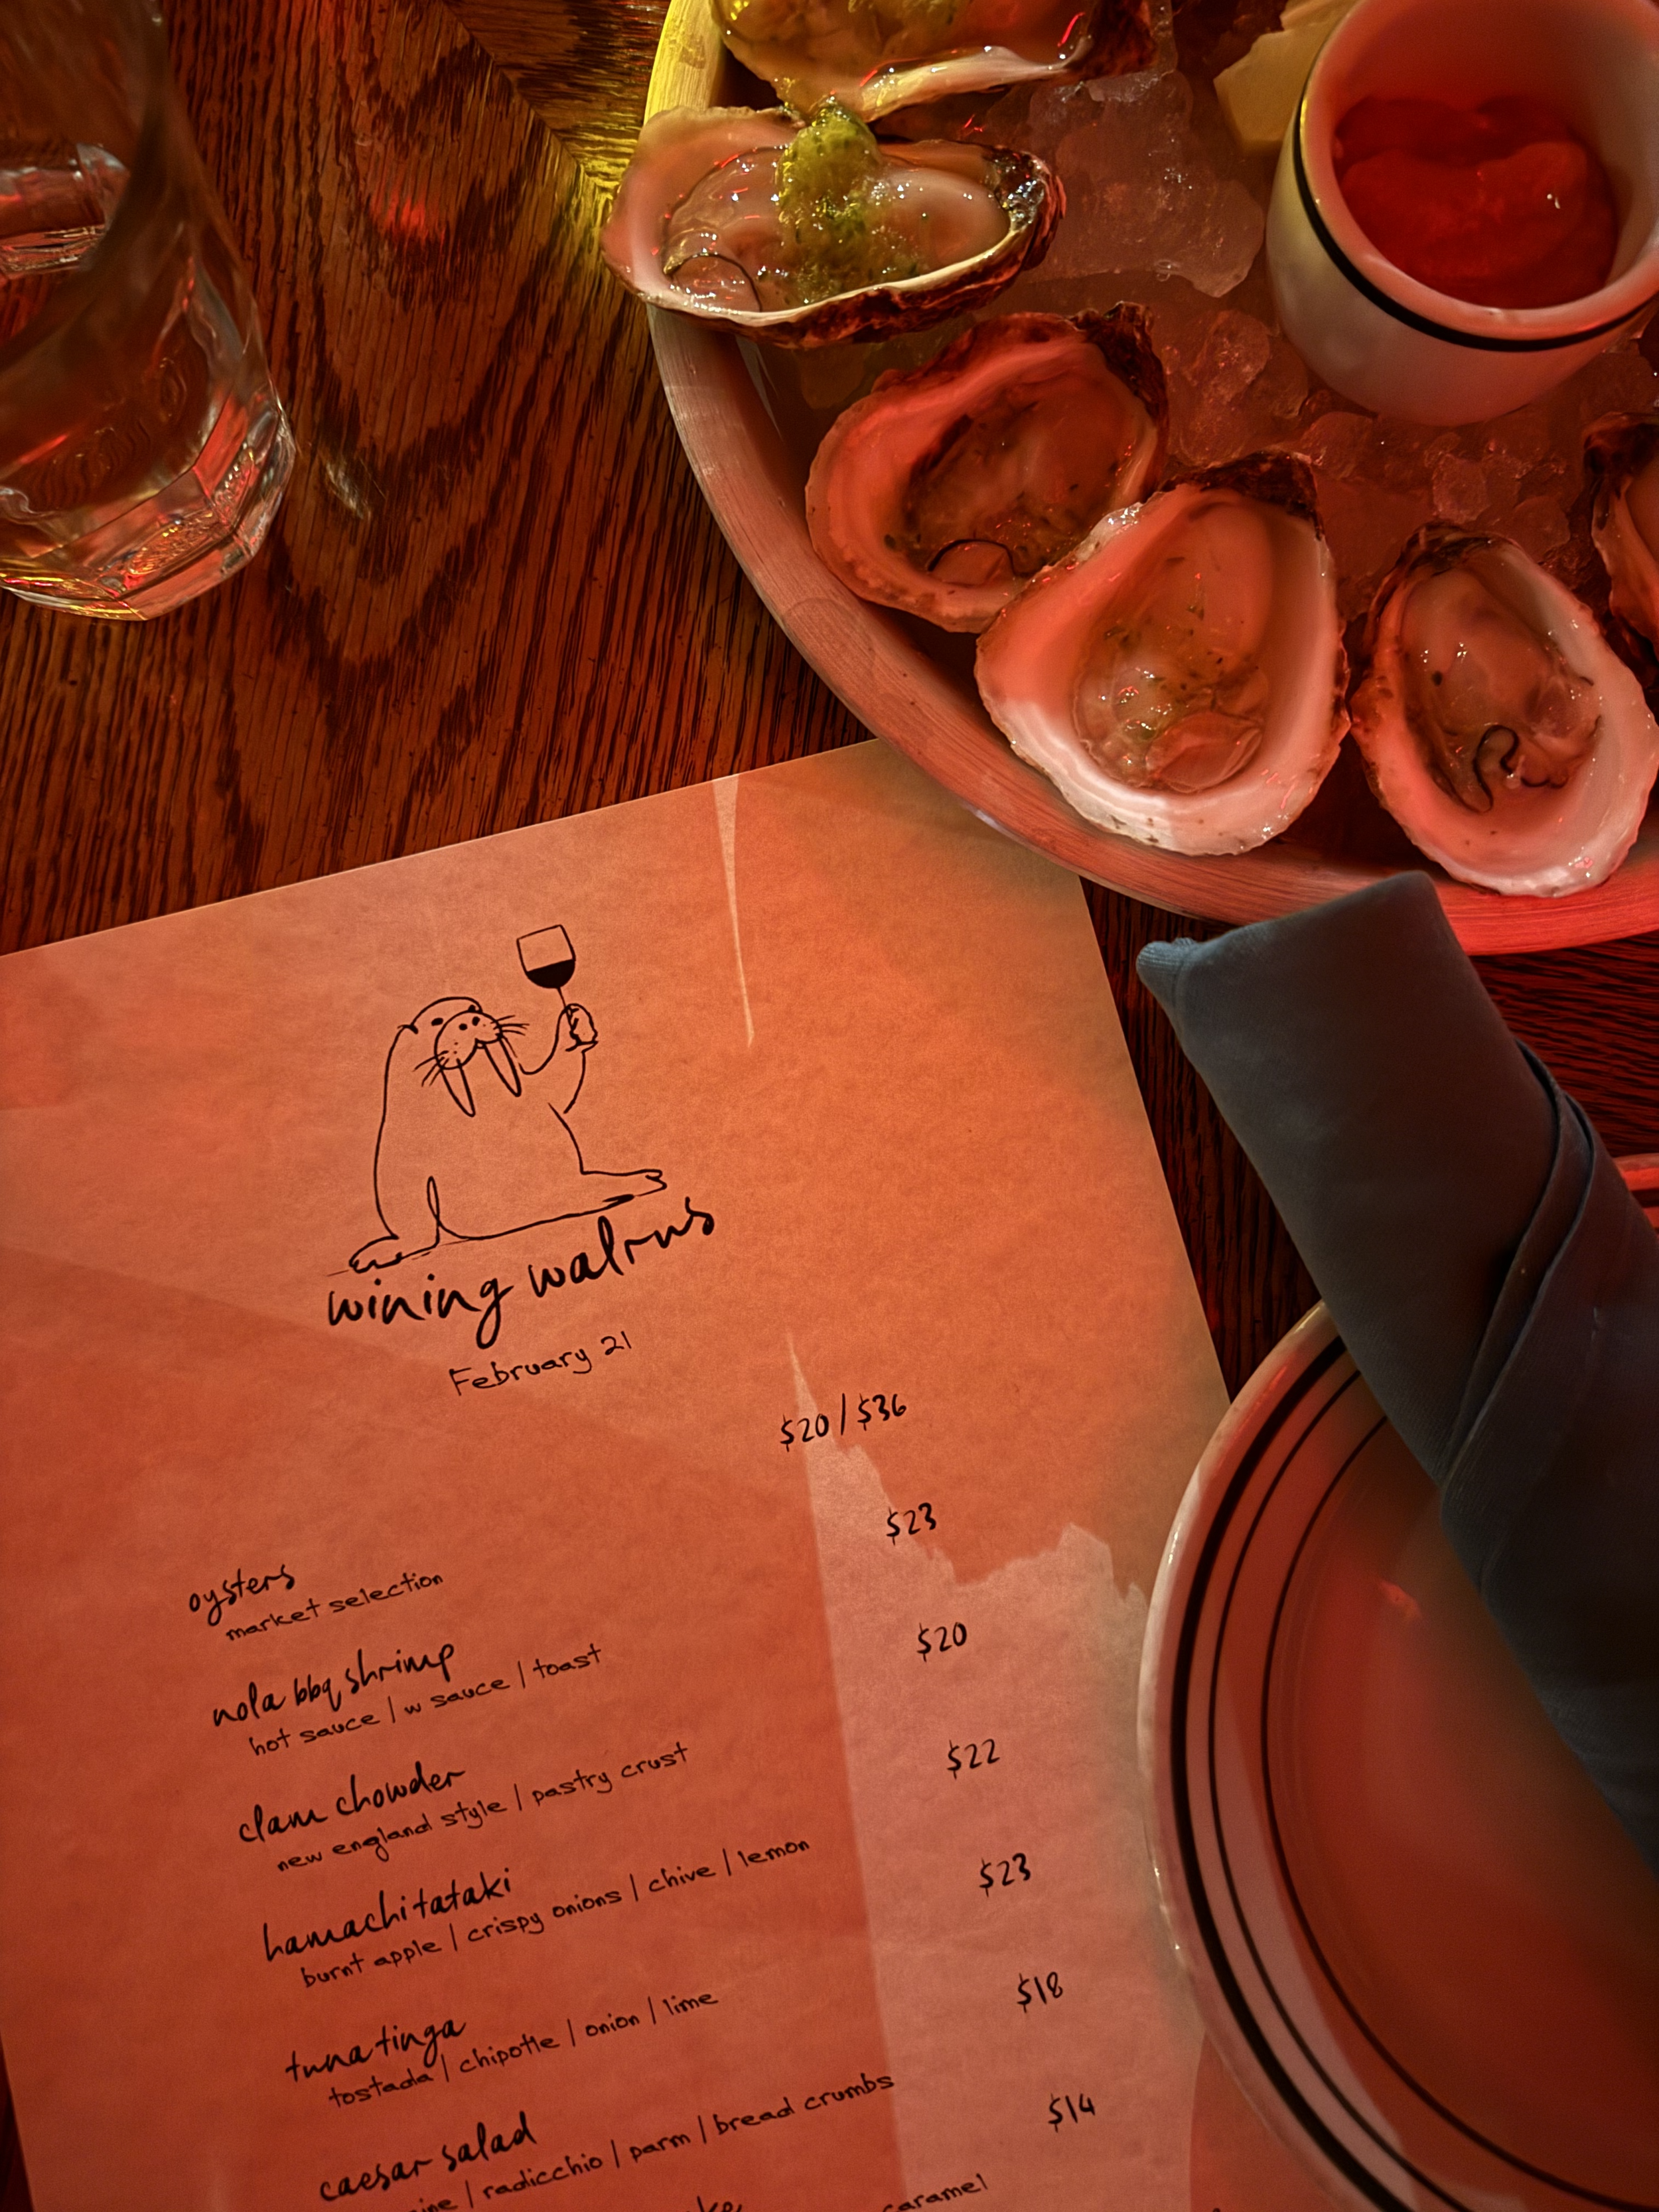 wining walrus
February 21
oysters $20/$36
market selection
nola bbq shrimp $23
hot sauce | w sauce | toast
clam chowder $20
new england style | pastry crust
hamachi tataki $22
burnt apple | crispy onions | chive | lemon
tuna tinga $23
tostada | chipotle | onion | lime
caesar salad $18
| radicchio | parm | bread crumbs
$14
caramel